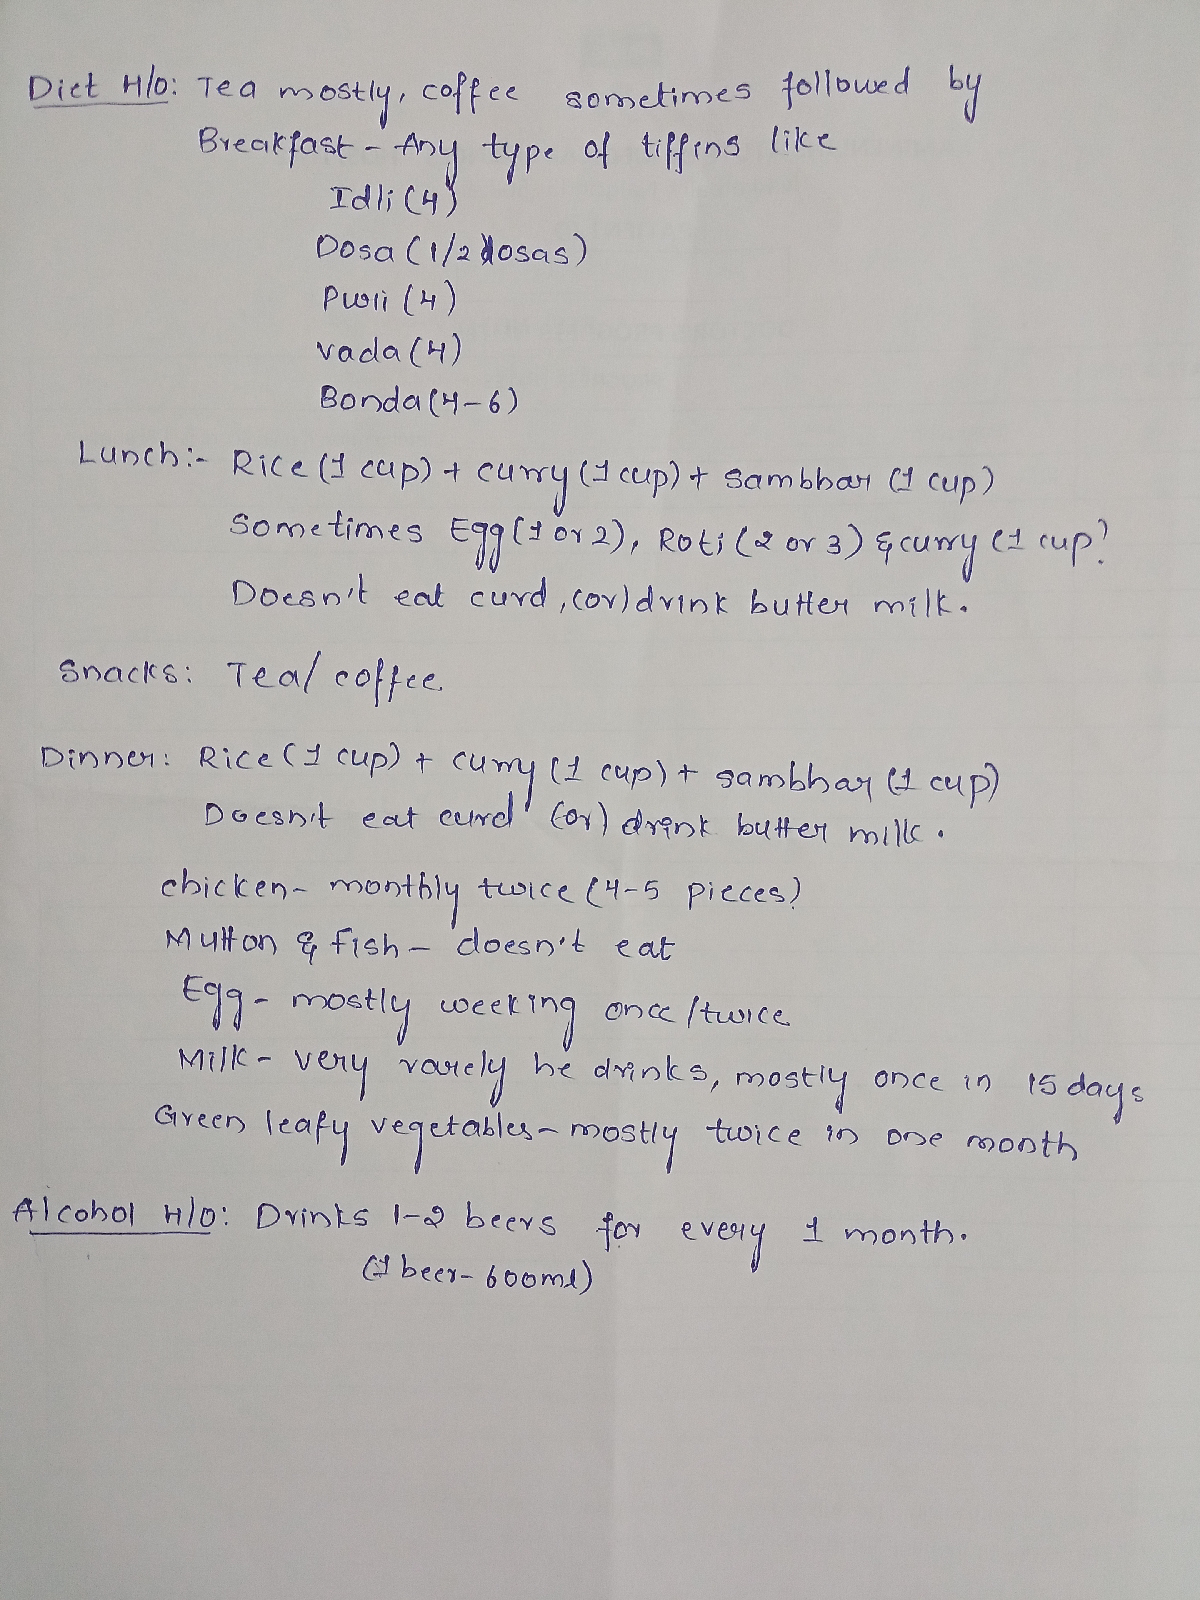 Diet H/O: Tea mostly, coffee sometimes followed by
Breakfast - Any type of tiffins like
Idli (4)
Dosa (1/2 dosas)
Puri (4)
vada (4)
Bonda (4-6)
Lunch:- Rice (1 cup) + curry (1 cup) + sambhar (1 cup)
Sometimes Egg (1 or 2), Roti (2 or 3) & curry (1 cup)
Doesn't eat curd, (or) drink butter milk.
Snacks: Tea/ coffee
Dinner: Rice (1 cup) + curry (1 cup) + sambhar (1 cup)
Doesn't eat curd (or) drink butter milk.
chicken - monthly twice (4-5 pieces)
Mutton & fish - doesn't eat
Egg - mostly weeking once/twice
Milk - very rarely he drinks, mostly once in 15 days
Green leafy vegetables - mostly twice in one month
Alcohol H/O: Drinks 1-2 beers for every 1 month.
(1 beer - 600ml)